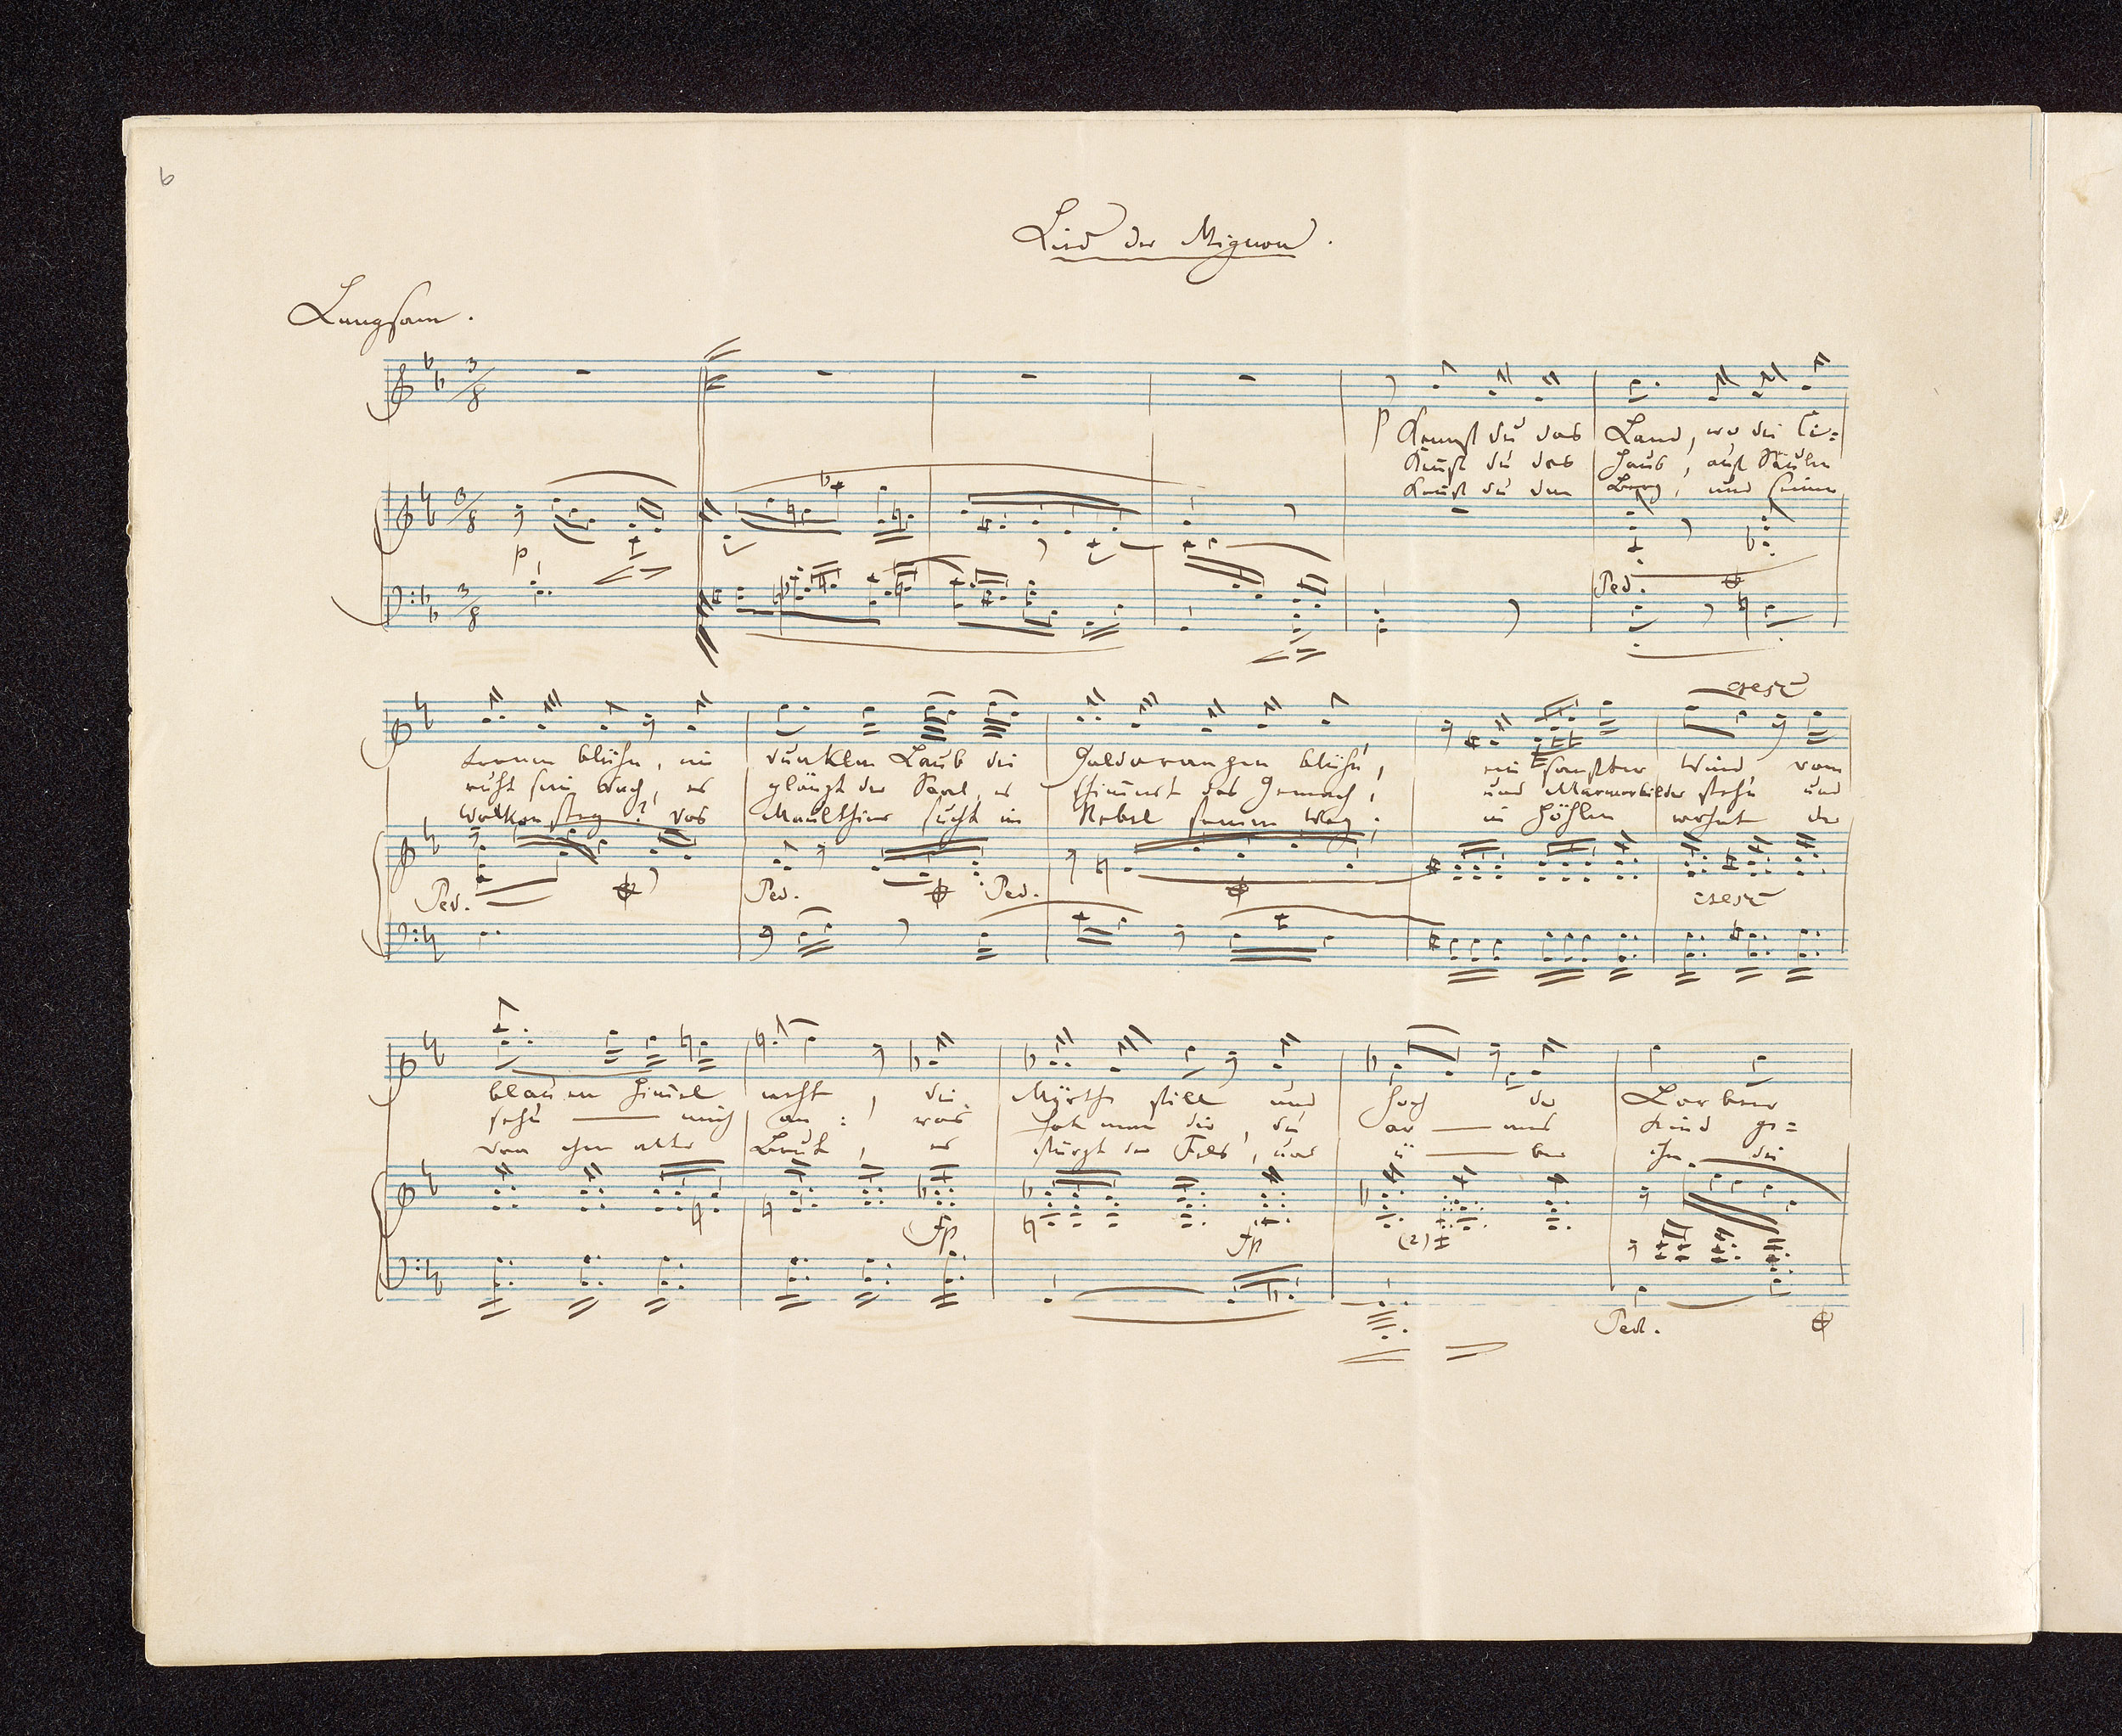 6
Lied der Mignon.
Langsam.
3/8
p Kennst du das Land, wo die Ci=
Kennst du das Haus, auf Säulen
Kennst du den Berg, und seinen
3/8
p
Ped.
3/8
cresc
tronen blühn, im dunklen Laub die Goldorangen blühn, ein sanfter Wind vom
ruht sein Dach, es glänzt der Saal, es schimmert das Gemach, und Marmorbilder stehn und
Wolkensteg? das Maulthier sucht im Nebel seinen Weg; in Höhlen wohnt der
Ped. Ped. Ped. cresc
blauen Himmel weht, die Myrthe still und hoch der Lorbeer
sehn — mich an: was hat man dir, du ar — mes Kind ge=
Drachen alte Brut, es stürzt der Fels, und ü — ber ihn die
fp fp (2)
Ped.